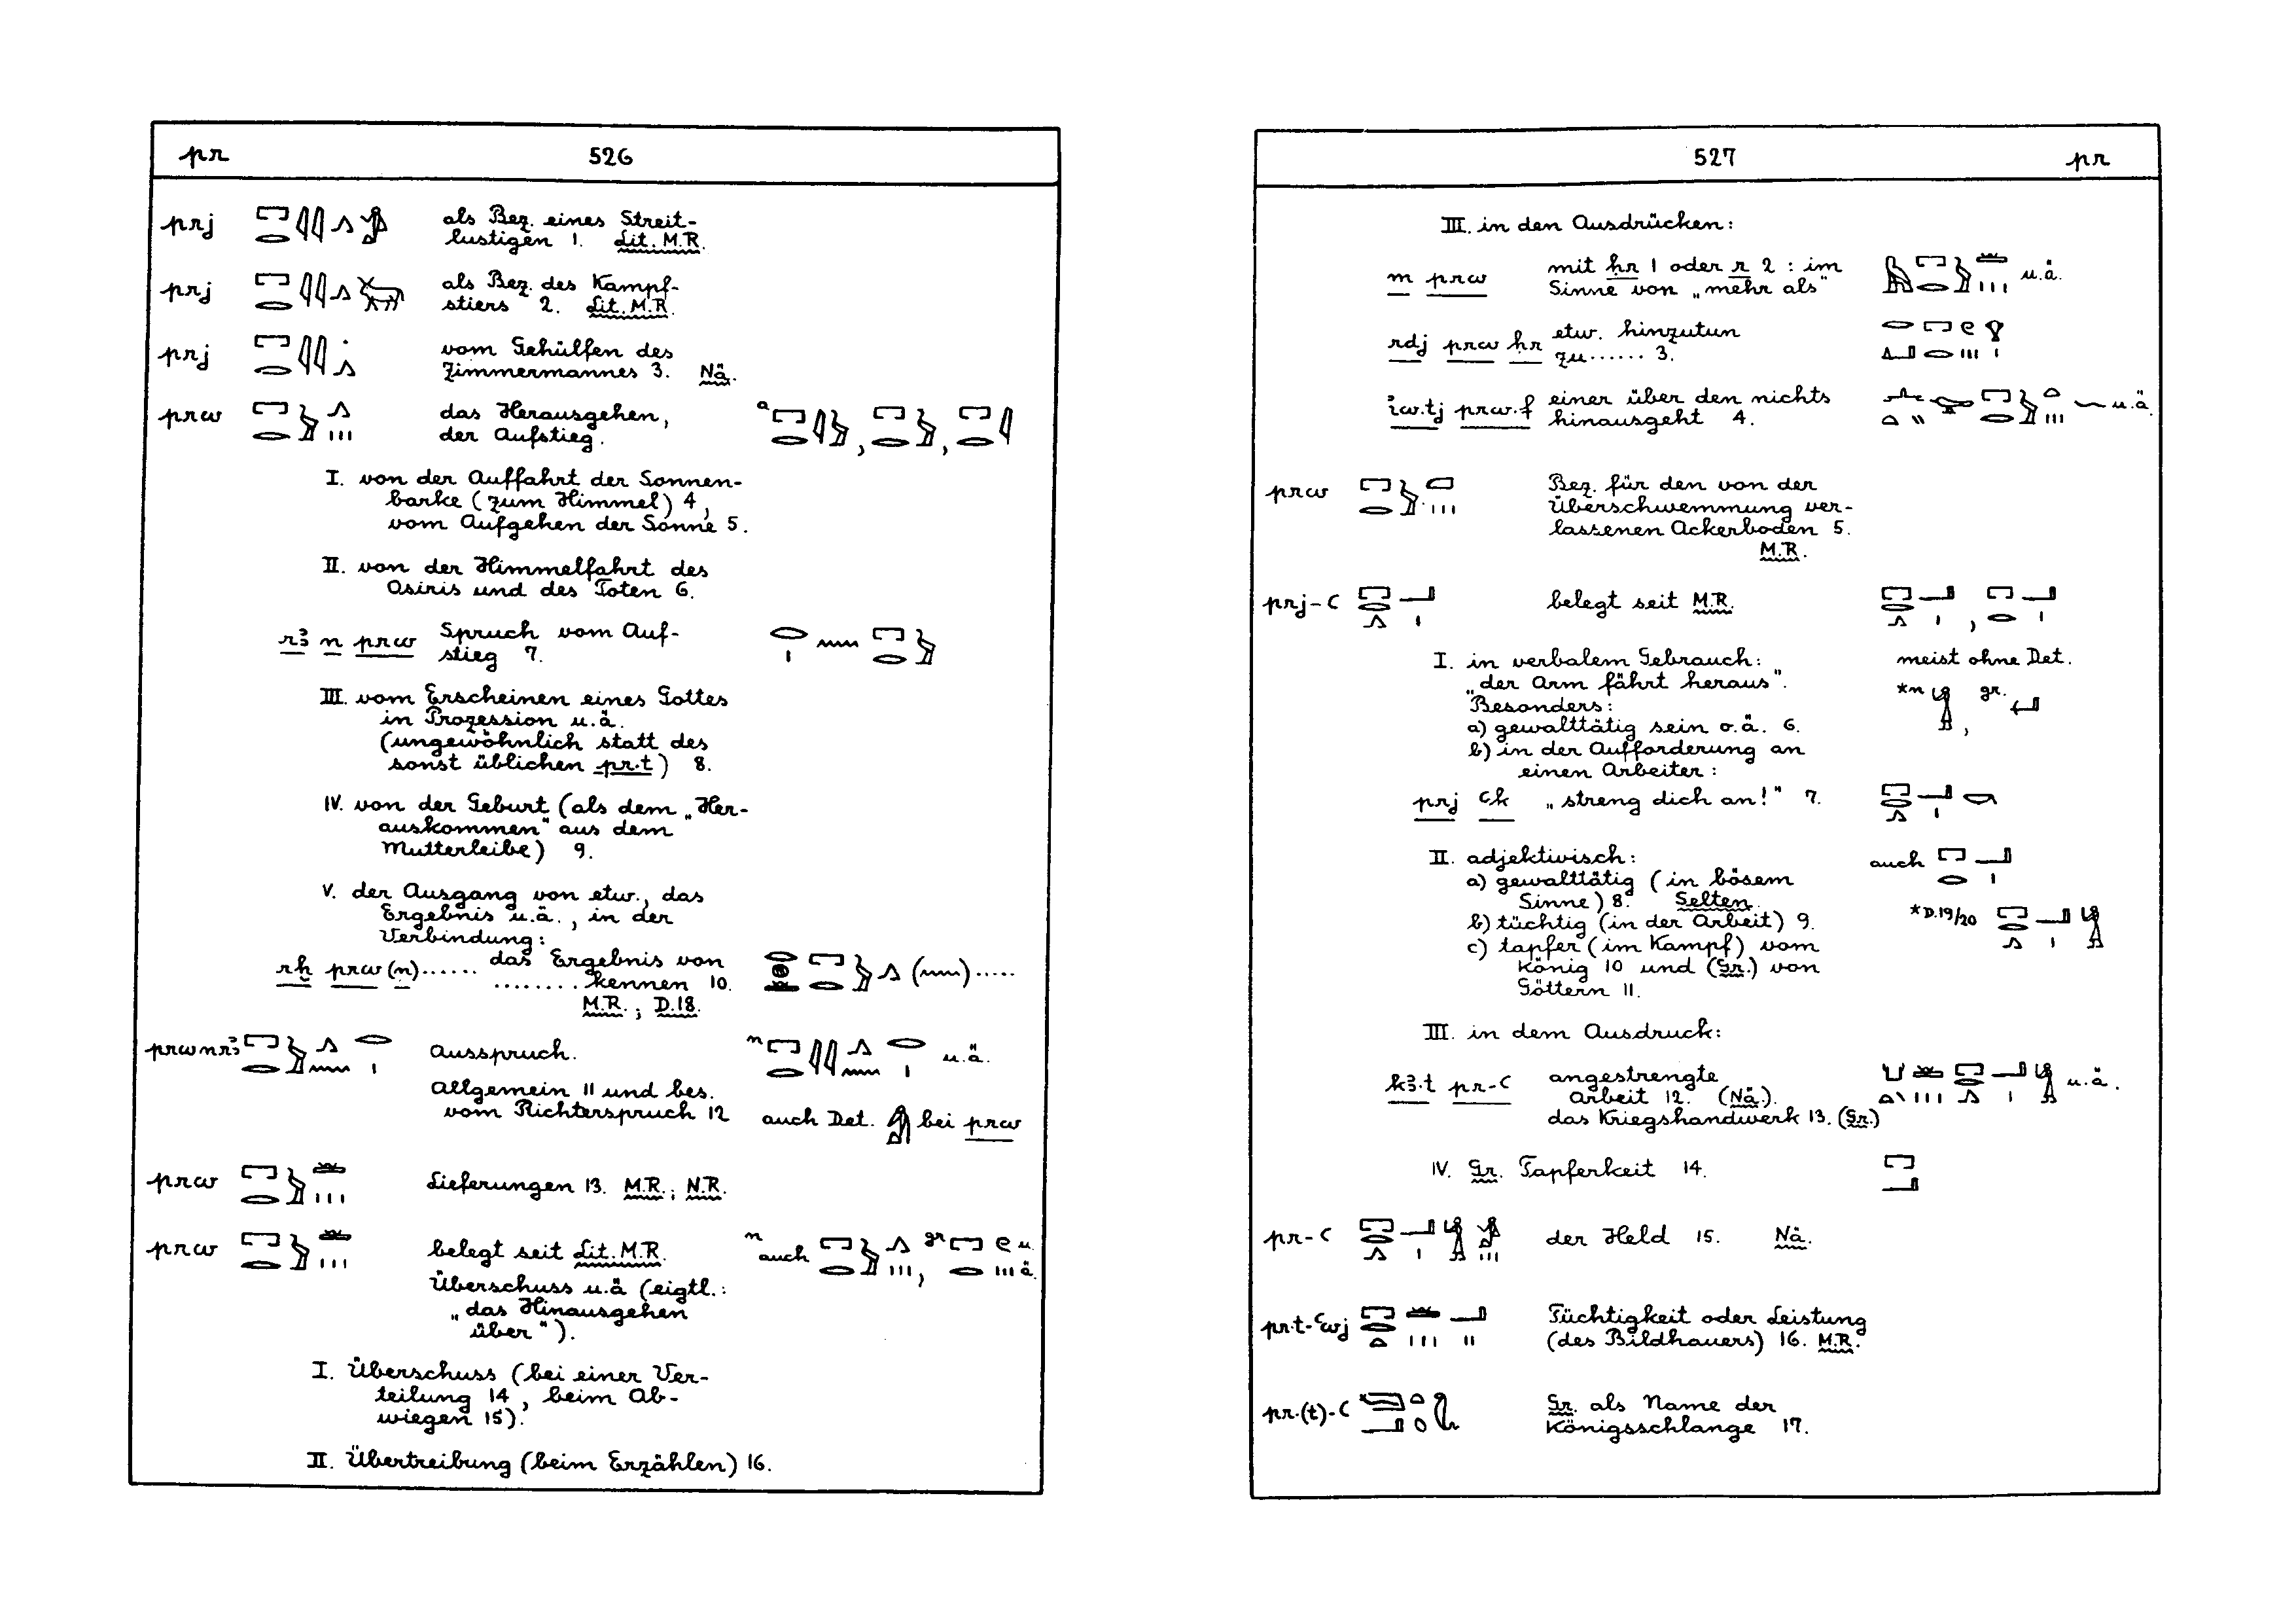 pr 526
prj als Bez. eines Streit-
lustigen 1. Lit. M.R.
prj als Bez. des Kampf-
stiers 2. Lit. M.R.
prj vom Gehülfen des
Zimmermannes 3. Nä.
prw das Herausgehen,
der Aufstieg.
I. von der Auffahrt der Sonnen-
barke (zum Himmel) 4,
vom Aufgehen der Sonne 5.
II. von der Himmelfahrt des
Osiris und des Toten 6.
rꜣ n prw Spruch vom Auf-
stieg 7.
III. vom Erscheinen eines Gottes
in Prozession u.ä.
(ungewöhnlich statt des
sonst üblichen pr.t) 8.
IV. von der Geburt (als dem „Her-
auskommen" aus dem
Mutterleibe) 9.
V. der Ausgang von etw., das
Ergebnis u.ä., in der
Verbindung:
rḫ prw (n)...... das Ergebnis von
........ kennen 10.
M.R.; D.18.
prw n rꜣ Ausspruch. n u.ä.
Allgemein 11 und bes.
vom Richterspruch 12 auch Det. bei prw
prw Lieferungen 13. M.R.; N.R.
prw belegt seit Lit. M.R. n auch , gr u.ä.
Überschuss u.ä (eigtl.:
„das Hinausgehen
über").
I. Überschuss (bei einer Ver-
teilung 14, beim Ab-
wiegen 15).
II. Übertreibung (beim Erzählen) 16.
527 pr
III. in den Ausdrücken:
m prw mit ḥr 1 oder r 2 : im u.ä.
Sinne von „mehr als"
rdj prw ḥr etw. hinzutun
zu...... 3.
iw.tj prw.f einer über den nichts u.ä.
hinausgeht 4.
prw Bez. für den von der
Überschwemmung ver-
lassenen Ackerboden 5.
M.R.
prj-ꜥ belegt seit M.R.
I. in verbalem Gebrauch: meist ohne Det.
„der Arm fährt heraus". *n , gr.
Besonders:
a) gewalttätig sein o.ä. 6.
b) in der Aufforderung an
einen Arbeiter:
prj ꜥk „streng dich an!" 7.
II. adjektivisch: auch
a) gewalttätig (in bösem
Sinne) 8. Selten.
b) tüchtig (in der Arbeit) 9. *D.19/20
c) tapfer (im Kampf) vom
König 10 und (Gr.) von
Göttern 11.
III. in dem Ausdruck:
kꜣ.t pr-ꜥ angestrengte u.ä.
Arbeit 12. (Nä.).
das Kriegshandwerk 13. (Gr.)
IV. Gr. Tapferkeit 14.
pr-ꜥ der Held 15. Nä.
pr.t-ꜥwj Tüchtigkeit oder Leistung
(des Bildhauers) 16. M.R.
pr.(t)-ꜥ Gr. als Name der
Königsschlange 17.